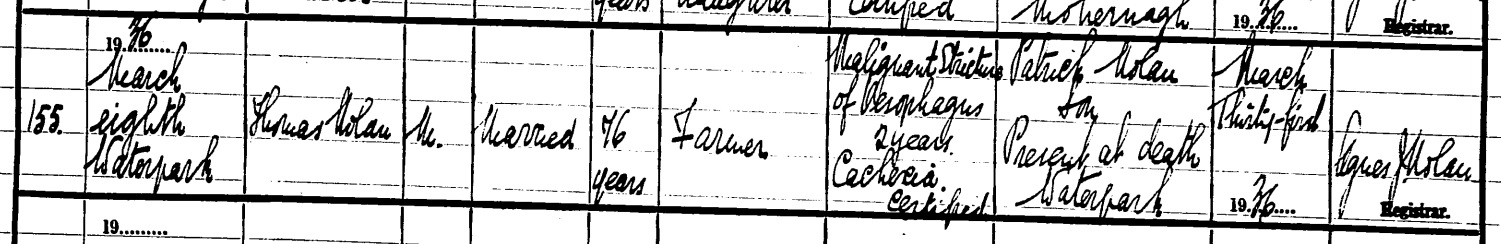 years
daughter
Certified
Mohernagh
1936
Registrar.
155.
1936
March
eighth
Waterpark
Thomas Nolan
M.
Married
76
years
Farmer
Malignant Stricture
of Oesophagus
2 years.
Cachexia.
Certified
Patrick Nolan
Son
Present at death
Waterpark
March
Thirty-first
1936
Agnes J Nolan
Registrar.
19